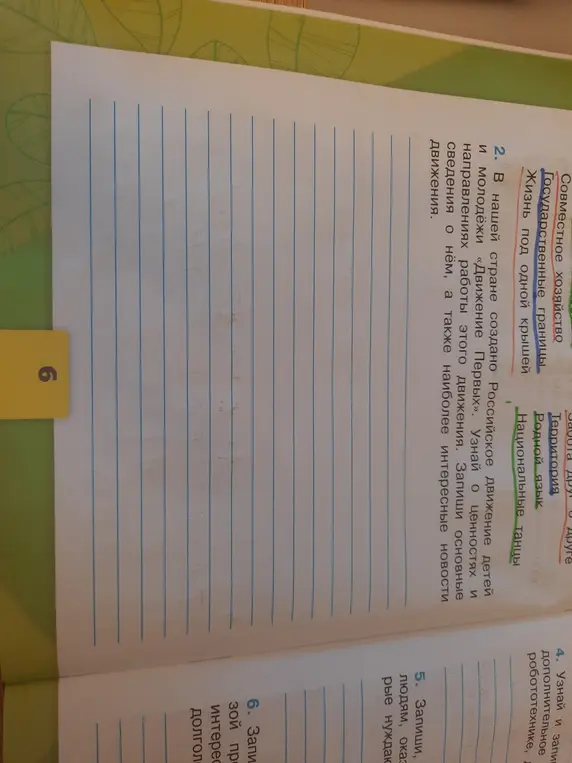 Совместное хозяйство
Государственные границы
Жизнь под одной крышей
Забота друг о друге
Территория
Родной язык
Национальные танцы
2. В нашей стране создано Российское движение детей
и молодёжи «Движение Первых». Узнай о ценностях и
направлениях работы этого движения. Запиши основные
сведения о нём, а также наиболее интересные новости
движения.
6
4. Узнай и запи
дополнительное
робототехнике,
5. Запиши,
людям, ока
рые нуждаю
6. Запи
зой пр
интерес
долгол